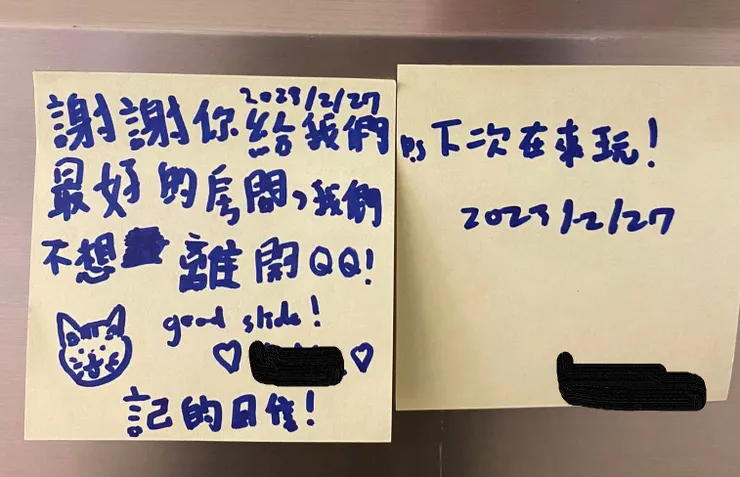 2023/2/27
謝謝你給我們
最好的房間,我們
不想離開QQ!
good slide!
記的日後!
PS下次在來玩!
2023/2/27